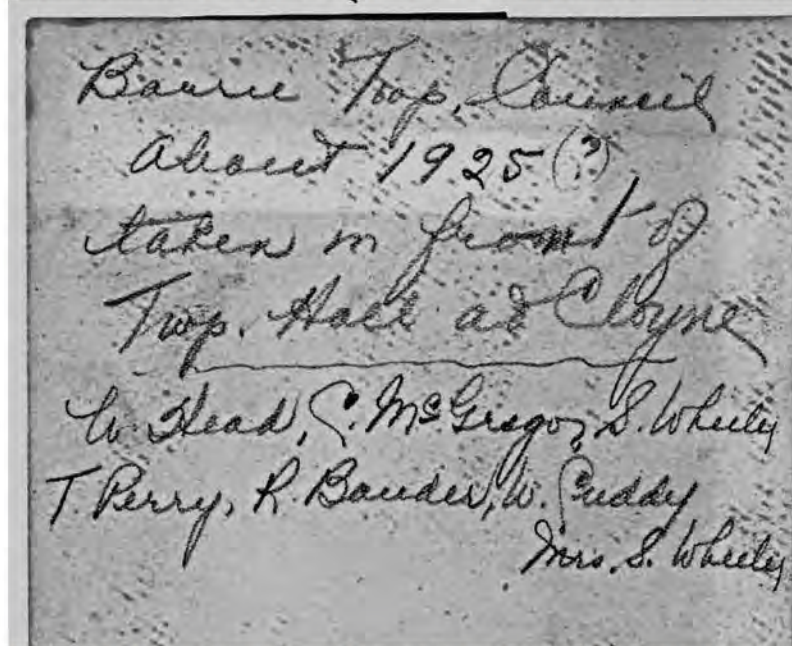 Barrie Twp. Council
about 1925 (?)
taken in front of
Twp. Hall at Cloyne
W. Head, C. McGregor, S. Wheeley
T. Perry, R. Bauder, W. Cuddy
Mrs. S. Wheeley